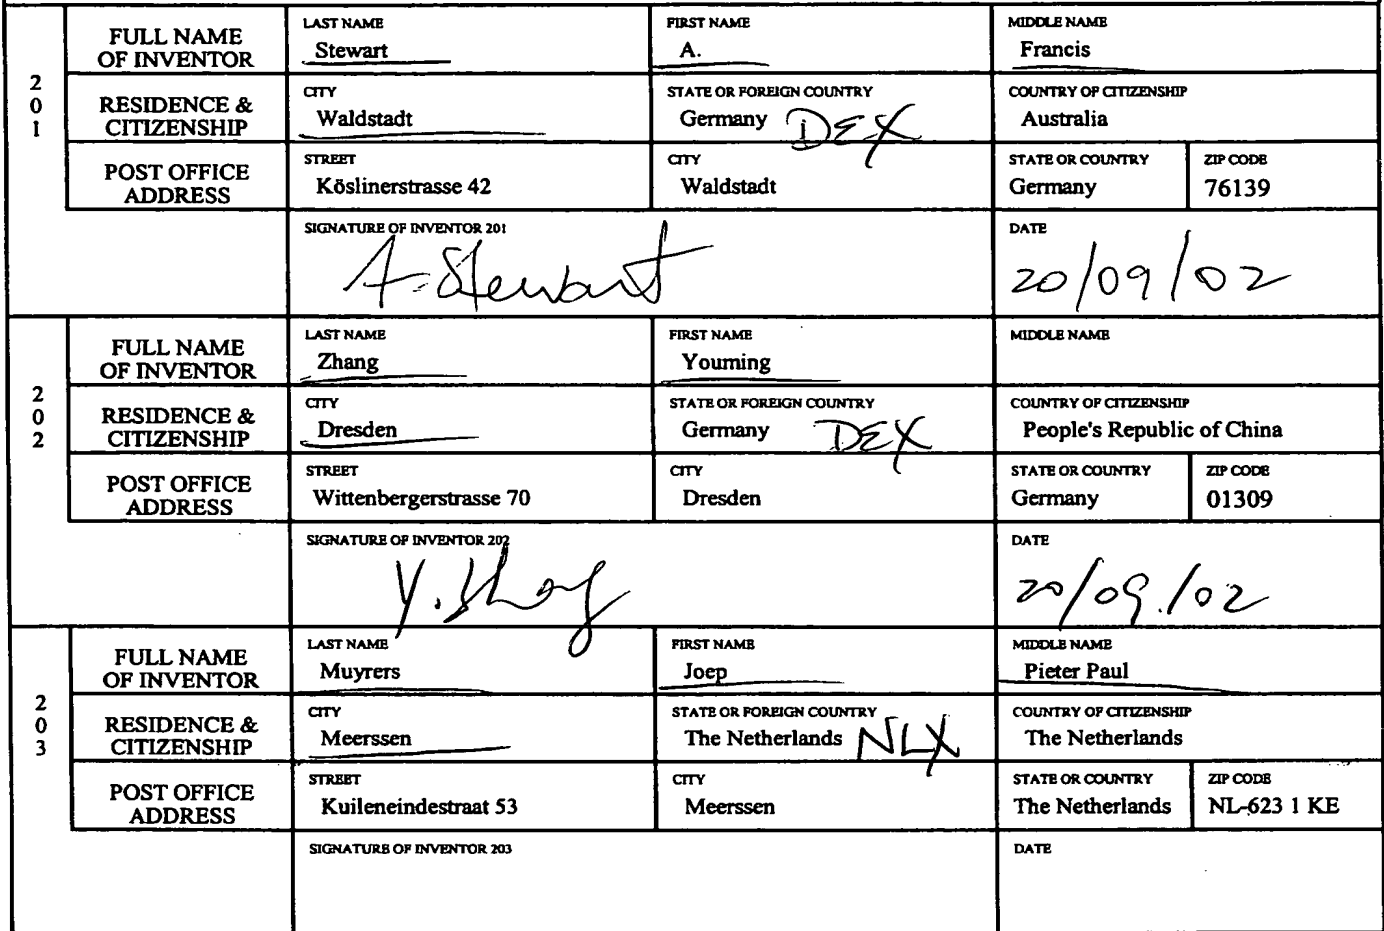 FULL NAME OF INVENTOR
LAST NAME Stewart
FIRST NAME A.
MIDDLE NAME Francis
201
RESIDENCE & CITIZENSHIP
CITY Waldstadt
STATE OR FOREIGN COUNTRY Germany DEX
COUNTRY OF CITIZENSHIP Australia
POST OFFICE ADDRESS
STREET Köslinerstrasse 42
CITY Waldstadt
STATE OR COUNTRY Germany
ZIP CODE 76139
SIGNATURE OF INVENTOR 201 A. Stewart
DATE 20/09/02
FULL NAME OF INVENTOR
LAST NAME Zhang
FIRST NAME Youming
MIDDLE NAME
202
RESIDENCE & CITIZENSHIP
CITY Dresden
STATE OR FOREIGN COUNTRY Germany DEX
COUNTRY OF CITIZENSHIP People's Republic of China
POST OFFICE ADDRESS
STREET Wittenbergerstrasse 70
CITY Dresden
STATE OR COUNTRY Germany
ZIP CODE 01309
SIGNATURE OF INVENTOR 202 Y. Zhang
DATE 20/09/02
FULL NAME OF INVENTOR
LAST NAME Muyrers
FIRST NAME Joep
MIDDLE NAME Pieter Paul
203
RESIDENCE & CITIZENSHIP
CITY Meerssen
STATE OR FOREIGN COUNTRY The Netherlands NLX
COUNTRY OF CITIZENSHIP The Netherlands
POST OFFICE ADDRESS
STREET Kuileneindestraat 53
CITY Meerssen
STATE OR COUNTRY The Netherlands
ZIP CODE NL-623 1 KE
SIGNATURE OF INVENTOR 203
DATE